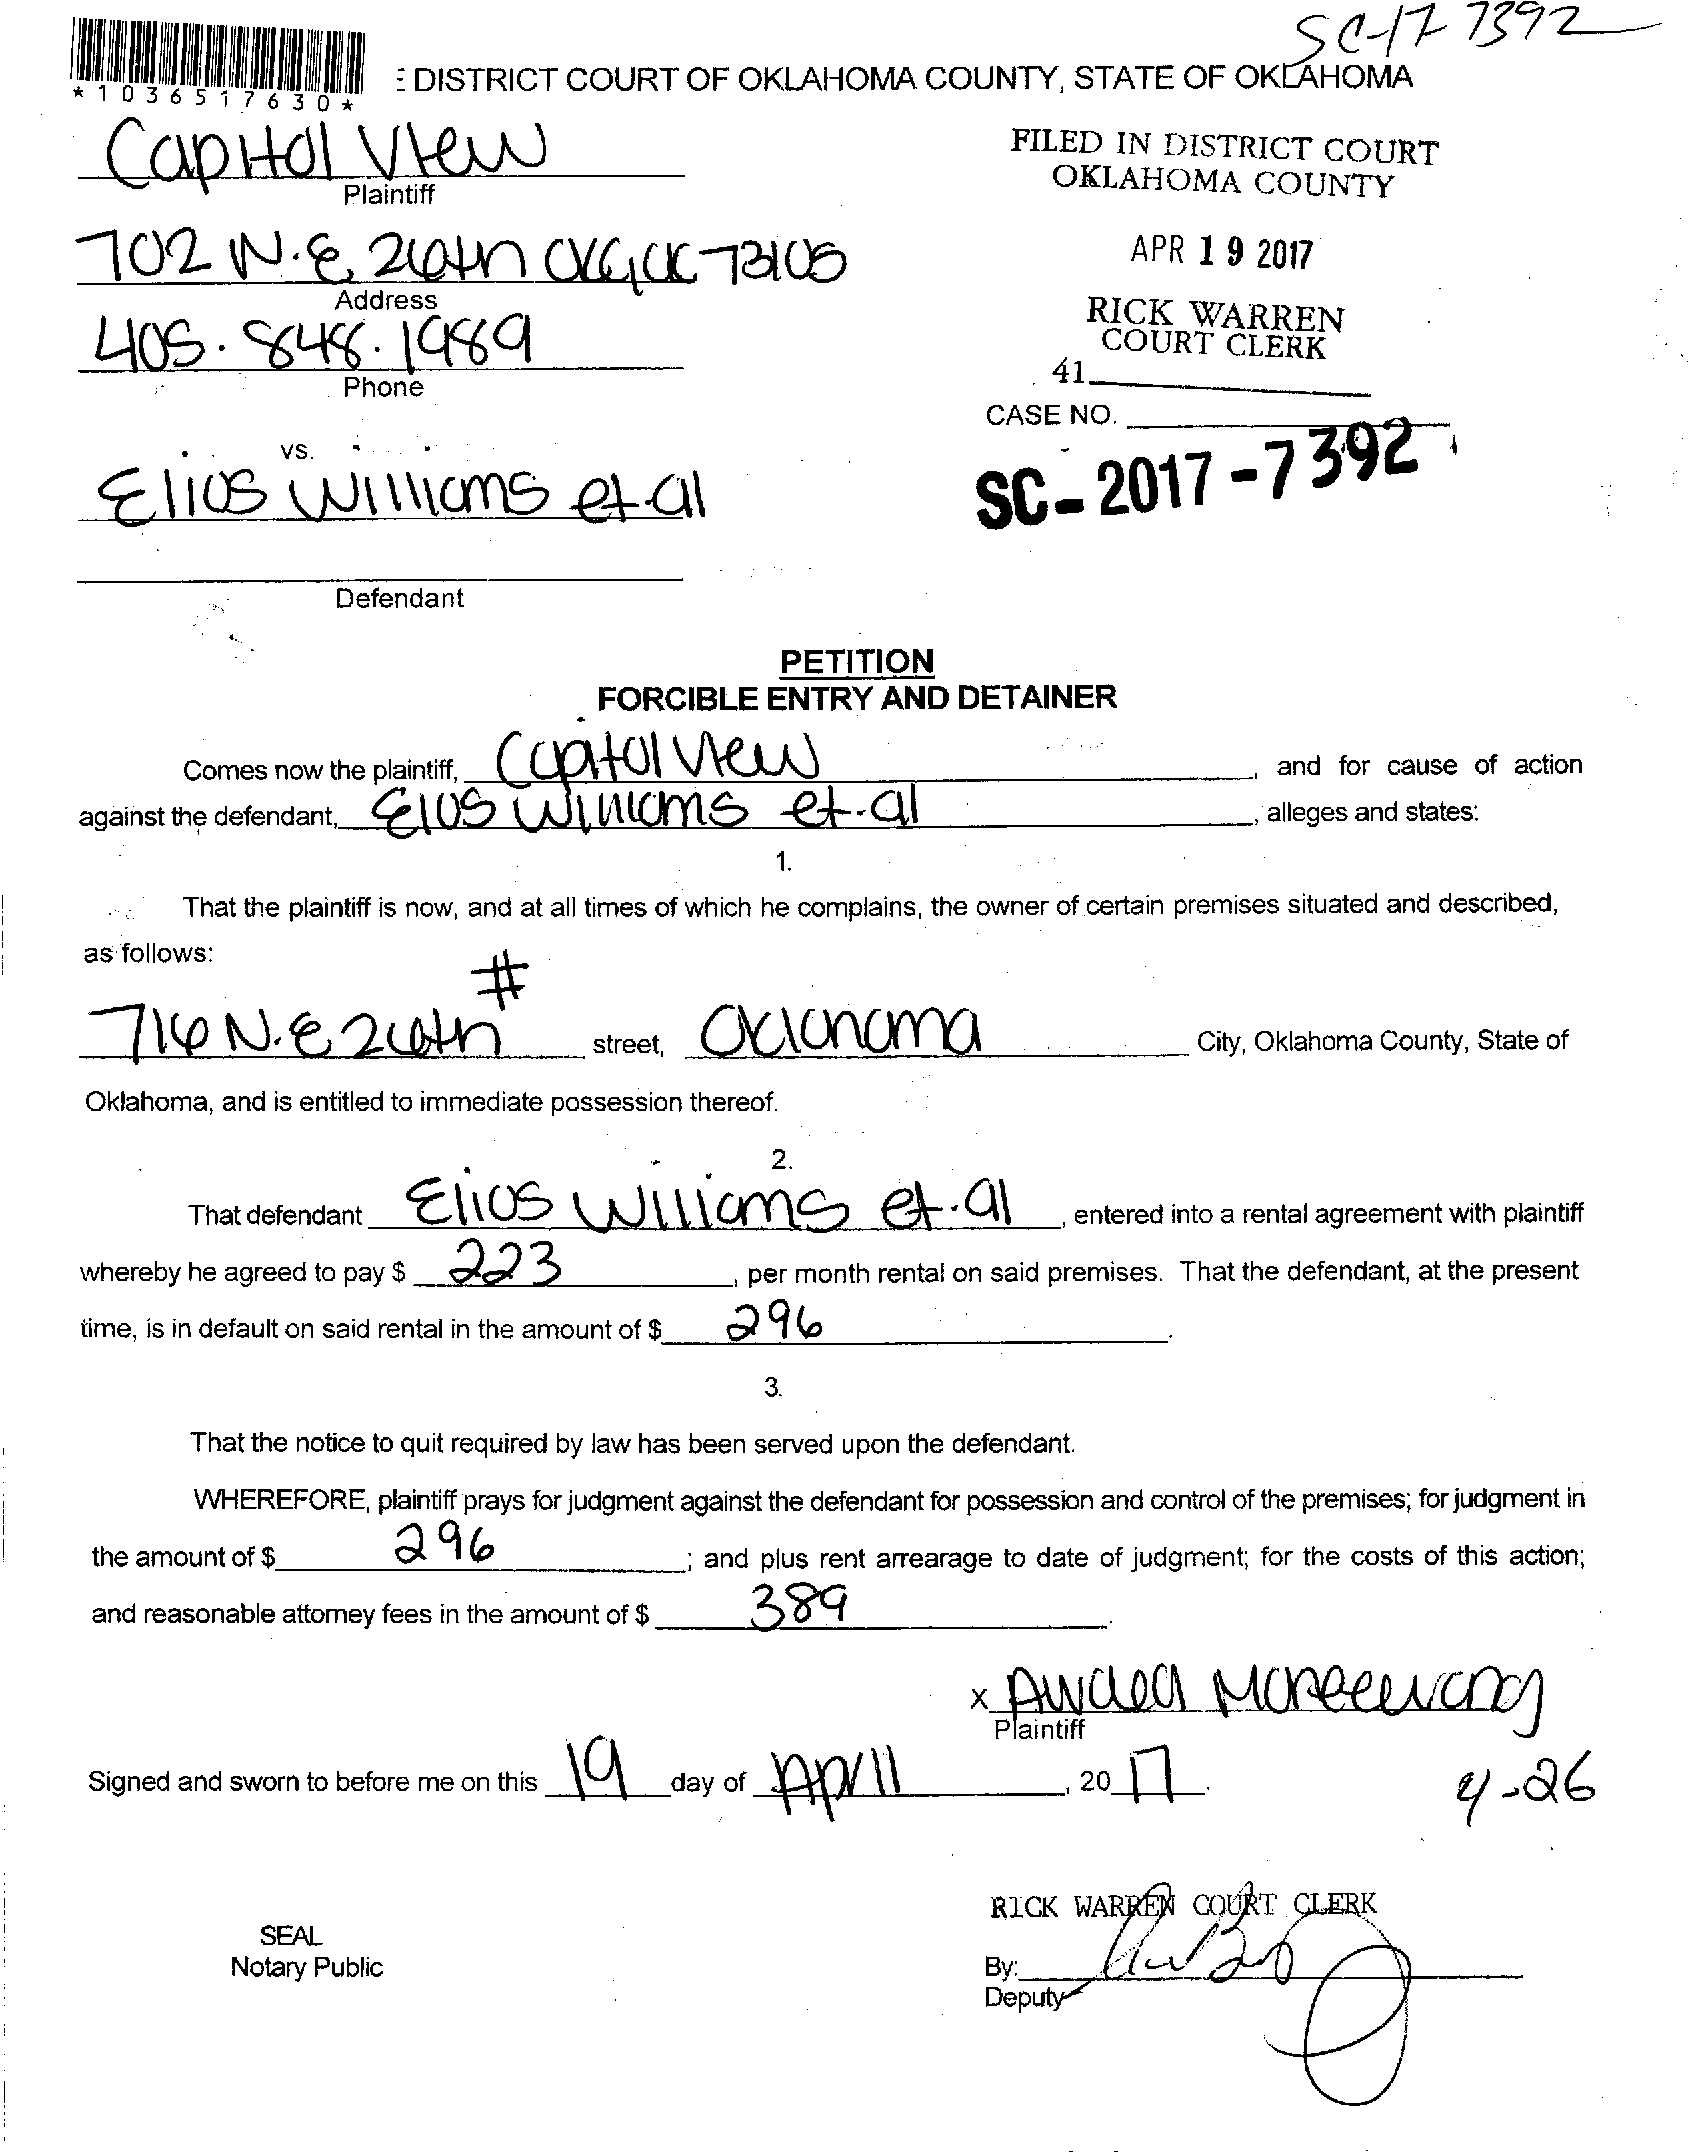 SC-17 7392
*1036517630*
DISTRICT COURT OF OKLAHOMA COUNTY, STATE OF OKLAHOMA
Capitol View
Plaintiff
FILED IN DISTRICT COURT
OKLAHOMA COUNTY
702 N.E. 26th OKC, OK 73105
Address
APR 19 2017
405.848.1989
Phone
RICK WARREN
COURT CLERK
41
CASE NO.
SC-2017-7392
vs.
Elias Williams et-al
Defendant
PETITION
FORCIBLE ENTRY AND DETAINER
Comes now the plaintiff, Capitol View, and for cause of action
against the defendant, Elias Williams et-al, alleges and states:
1.
That the plaintiff is now, and at all times of which he complains, the owner of certain premises situated and described,
as follows:
#
716 N.E 26th street, Oklahoma City, Oklahoma County, State of
Oklahoma, and is entitled to immediate possession thereof.
2.
That defendant Elias Williams et-al, entered into a rental agreement with plaintiff
whereby he agreed to pay $ 223, per month rental on said premises. That the defendant, at the present
time, is in default on said rental in the amount of $ 296.
3.
That the notice to quit required by law has been served upon the defendant.
WHEREFORE, plaintiff prays for judgment against the defendant for possession and control of the premises; for judgment in
the amount of $ 296; and plus rent arrearage to date of judgment; for the costs of this action;
and reasonable attorney fees in the amount of $ 389.
x
Plaintiff
Signed and sworn to before me on this 19 day of April, 2017.
4-26
RICK WARREN COURT CLERK
SEAL
Notary Public
By:
Deputy